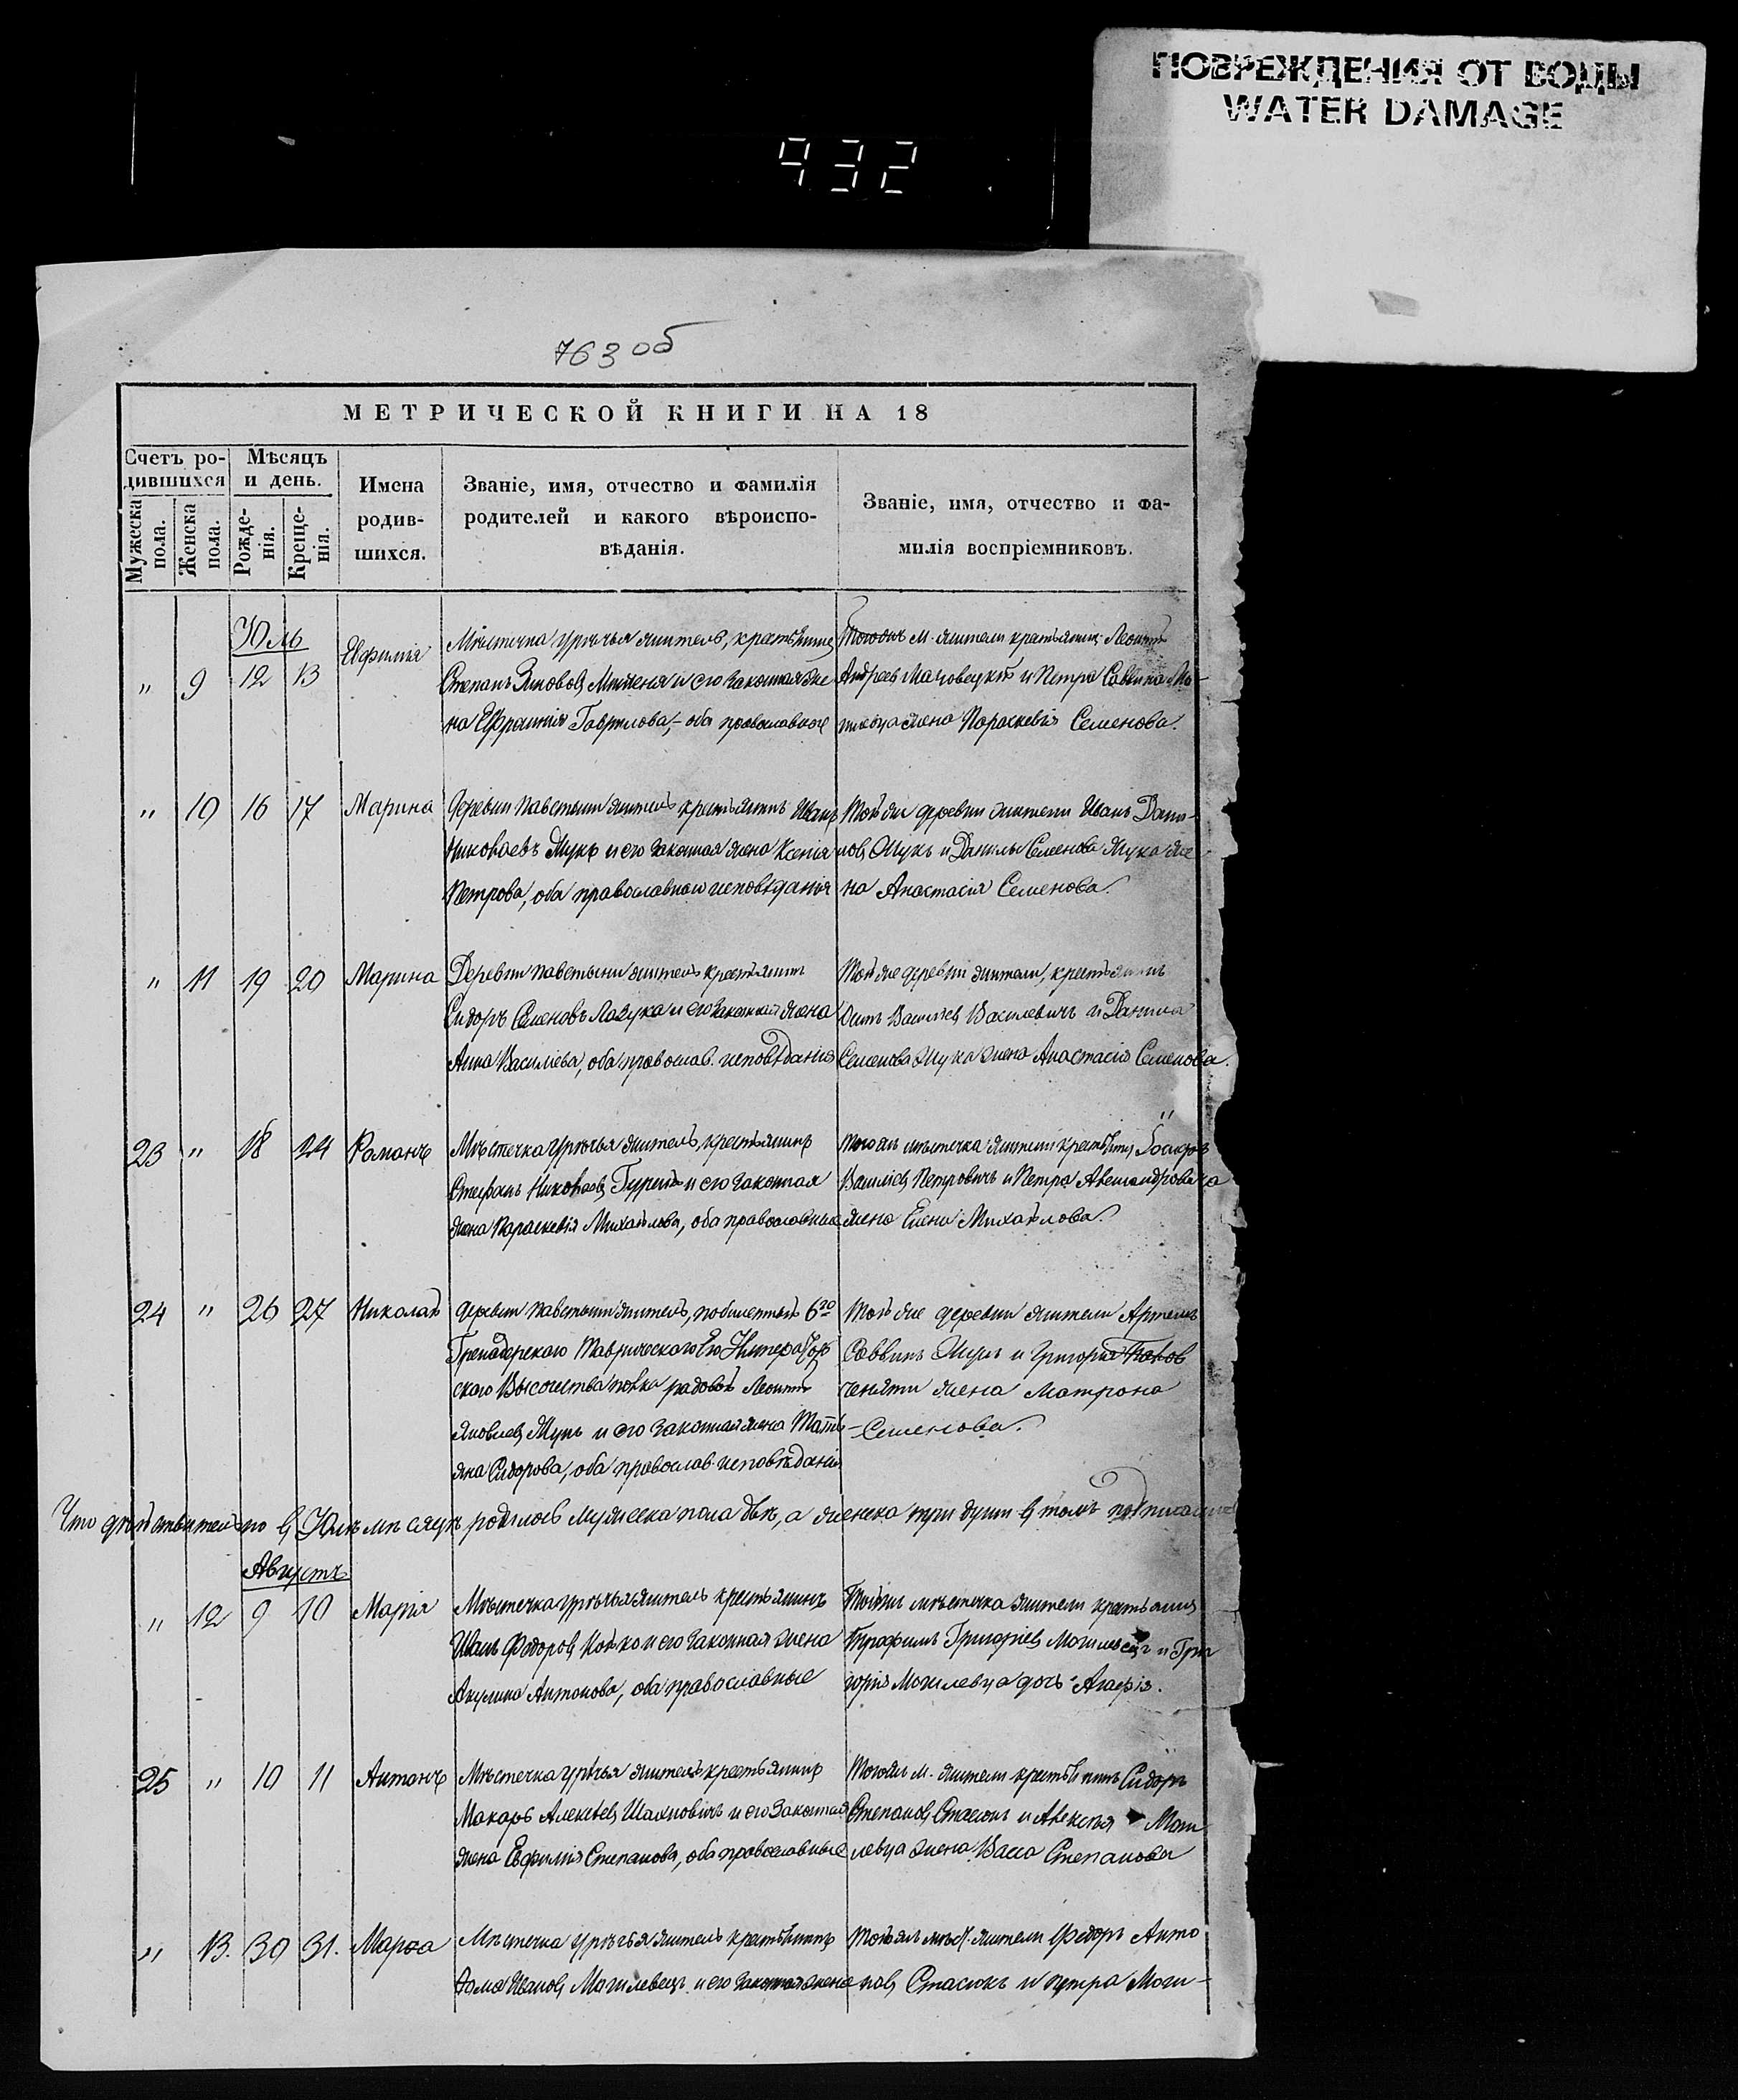 ПОВРЕЖДЕНИЯ ОТ ВОДЫ
WATER DAMAGE
932
763 об
МЕТРИЧЕСКОЙ КНИГИ НА 18
Счетъ ро-
дившихся
Мужеска пола.
Женска пола.
Мѣсяцъ
и день.
Рожде-
нія.
Креще-
нія.
Имена
родив-
шихся.
Званіе, имя, отчество и фамилія
родителей и какого вѣроиспо-
вѣданія.
Званіе, имя, отчество и фа-
милія воспріемниковъ.
Юль
" 9 12 13 Евфимія
Мѣстечка Урѣчья житель, крестьянинъ
Степанъ и его законная же
на Гаврилова, - оба православные
Тогожъ м. жители крестьянинъ Леонтій
Андреевъ и Петра Саввина Мо-
жена Параскевія Семенова.
" 10 16 17 Марина
Деревни Павстыни житель крестьянинъ Иванъ
Николаевъ Жукъ и его законная жена Ксенія
Петрова, оба православнаго исповѣданія
Той же деревни жители Иванъ Дани-
ловъ Жукъ и Данилы Семенова Жука же
на Анастасія Семенова.
" 11 19 20 Марина
Деревни Павстыни житель крестьянинъ
Сидоръ Семеновъ и его законная жена
Анна Василіева, оба православ. исповѣданія
Той же деревни жители, крестьянинъ
Василіевъ Василевичъ и Данила
Семенова Жука жена Анастасія Семенова.
23 " 18 24 Романъ
Мѣстечка Урѣчья житель, крестьянинъ
Стефанъ Николаевъ и его законная
жена Параскевія Михайлова, оба православные
Тогожъ мѣстечка жители крестьянинъ
Василіевъ Петровичъ и Петра
жена Елена Михайлова.
24 " 26 27 Николай
Деревни Павстыни житель, побилетный 6го
Гренадерского Таврического Его Император
скаго Высочества полка рядовой Леонтій
Яковлевъ Жукъ и его законная жена Тать-
яна Сидорова, оба православ. исповѣданія
Той же деревни жители Артемъ
Саввинъ Жукъ и Григорія
жена Матрона
Семенова.
Что дѣйствительно въ Юлѣ мѣсяцѣ родилось мужеска пола двѣ, а женска три души въ томъ подписался
Августъ
" 12 9 10 Марія
Мѣстечка Урѣчья житель крестьянинъ
Иванъ Федоровъ и его законная жена
Акулина Антонова, оба православные
мѣстечка жители крестьянинъ
Трофимъ Григоріевъ Могилевецъ и Гри
горія Могилевца дочь Агафія.
25 " 10 11 Антонъ
Мѣстечка Урѣчья житель крестьянинъ
Макаръ Алексѣевъ и его законная
жена Евфимія Степанова, оба православные
Тогожъ м. жители крестьянинъ Сидоръ
Степановъ Стасюкъ и Алексѣя Моги
левца жена Васса Степанова
" 13. 30 31. Марѳа
Мѣстечка Урѣчья житель крестьянинъ
Ѳома Ивановъ Могилевецъ и его законная жена
жители Федоръ Анто
новъ Стасюкъ и Петра Моги-